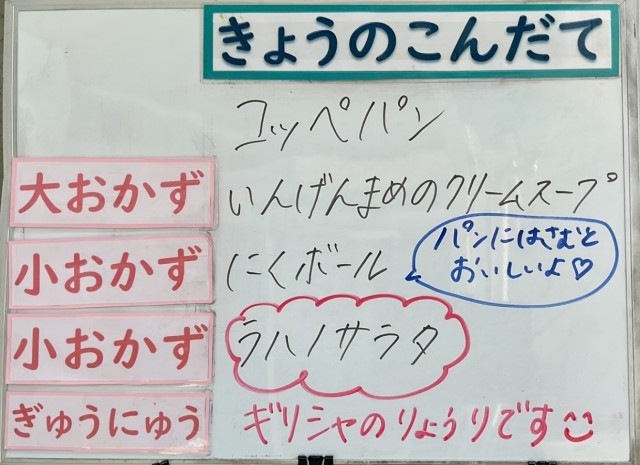 きょうのこんだて
コッペパン
大おかず いんげんまめのクリームスープ
小おかず にくボール
パンにはさむと
おいしいよ♡
小おかず ラハノサラタ
ぎゅうにゅう ギリシャのりょうりです